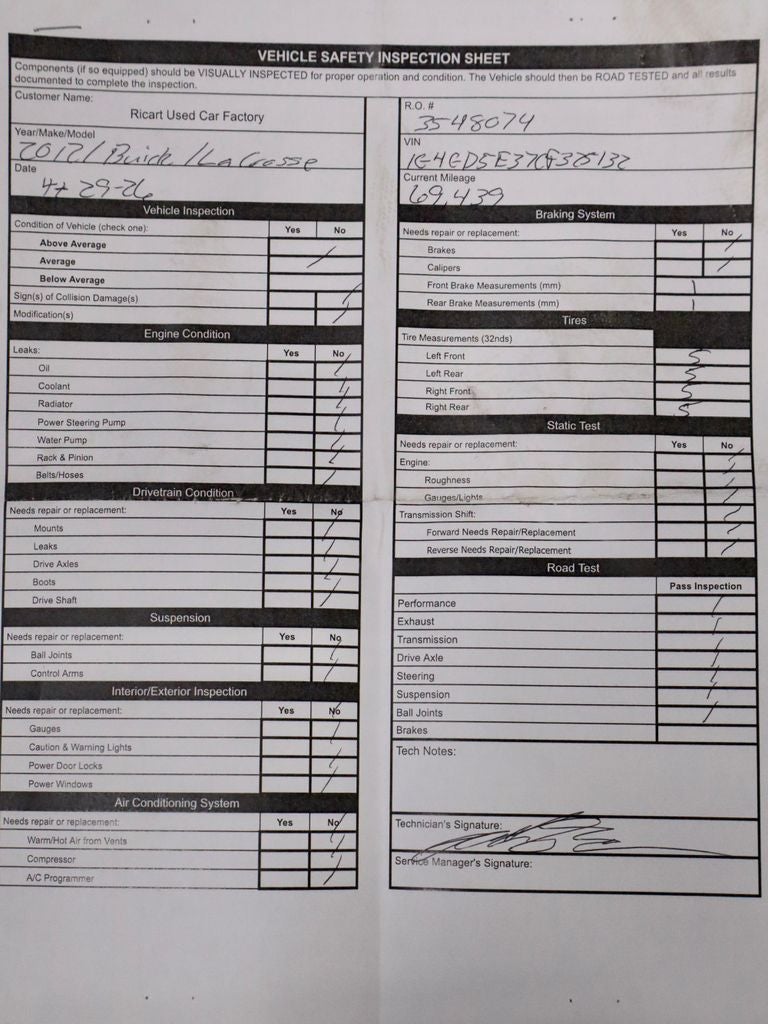 VEHICLE SAFETY INSPECTION SHEET
Components (if so equipped) should be VISUALLY INSPECTED for proper operation and condition. The Vehicle should then be ROAD TESTED and all results
documented to complete the inspection.
Customer Name:
Ricart Used Car Factory
Year/Make/Model
2012/ Buick /LaCrosse
Date
29-26
Vehicle Inspection
Condition of Vehicle (check one): Yes No
Above Average
Average
Below Average
Sign(s) of Collision Damage(s)
Modification(s)
Engine Condition
Leaks: Yes No
Oil
Coolant
Radiator
Power Steering Pump
Water Pump
Rack & Pinion
Belts/Hoses
Drivetrain Condition
Needs repair or replacement: Yes No
Mounts
Leaks
Drive Axles
Boots
Drive Shaft
Suspension
Needs repair or replacement: Yes No
Ball Joints
Control Arms
Interior/Exterior Inspection
Needs repair or replacement: Yes No
Gauges
Caution & Warning Lights
Power Door Locks
Power Windows
Air Conditioning System
Needs repair or replacement: Yes No
Warm/Hot Air from Vents
Compressor
A/C Programmer
R.O. #
3548074
VIN
Current Mileage
69,439
Braking System
Needs repair or replacement: Yes No
Brakes
Calipers
Front Brake Measurements (mm)
Rear Brake Measurements (mm)
Tires
Tire Measurements (32nds)
Left Front 5
Left Rear 5
Right Front 5
Right Rear 5
Static Test
Needs repair or replacement: Yes No
Engine:
Roughness
Gauges/Lights
Transmission Shift:
Forward Needs Repair/Replacement
Reverse Needs Repair/Replacement
Road Test
Pass Inspection
Performance
Exhaust
Transmission
Drive Axle
Steering
Suspension
Ball Joints
Brakes
Tech Notes:
Technician's Signature:
Service Manager's Signature: